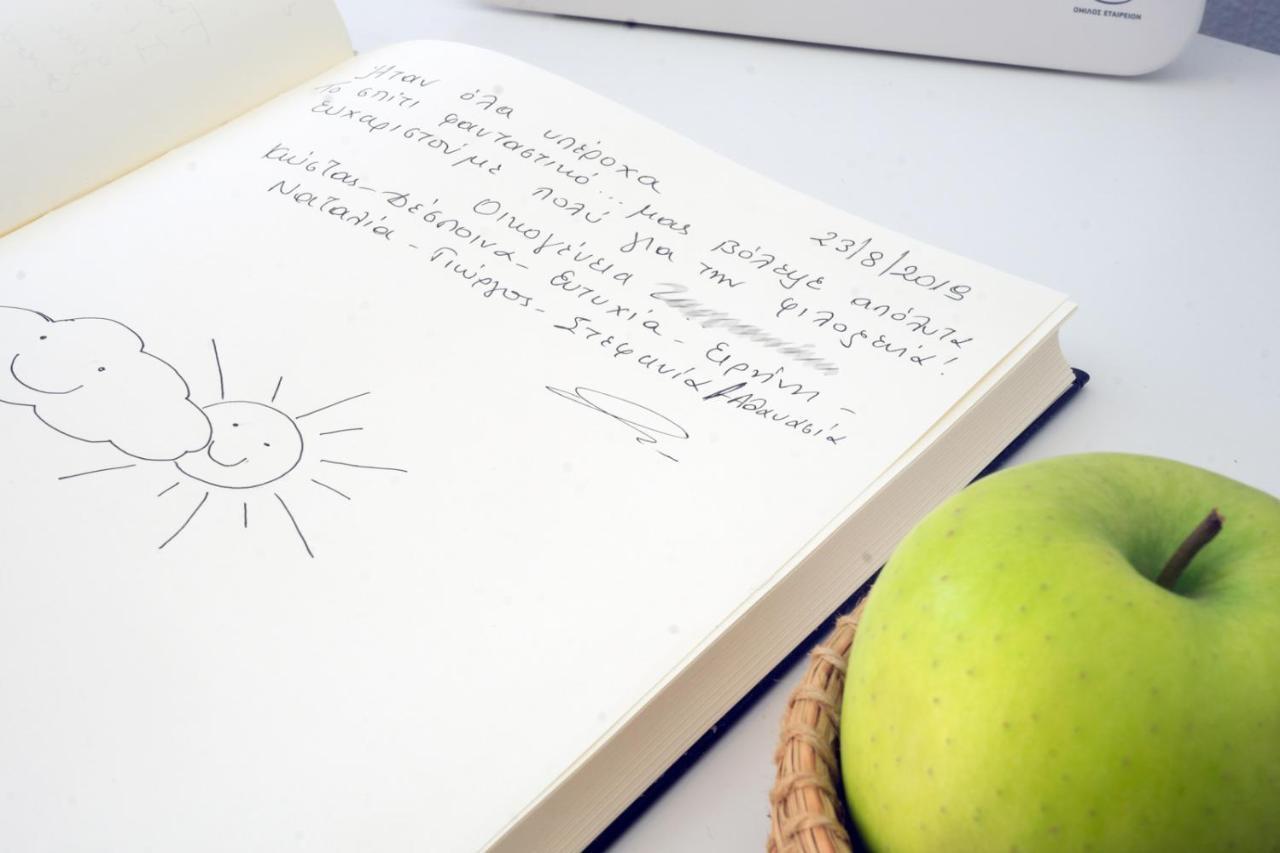 ΟΜΙΛΟΣ ΕΤΑΙΡΕΙΩΝ
23/8/2019
Ήταν όλα υπέροχα
Το σπίτι φανταστικό... μας βόλεψε απόλυτα
Ευχαριστούμε πολύ για την φιλοξενία!
Οικογένεια
Κώστας - Δέσποινα - Ευτυχία - Ειρήνη -
Ναταλία - Γιώργος - Στεφανία Αθανασία